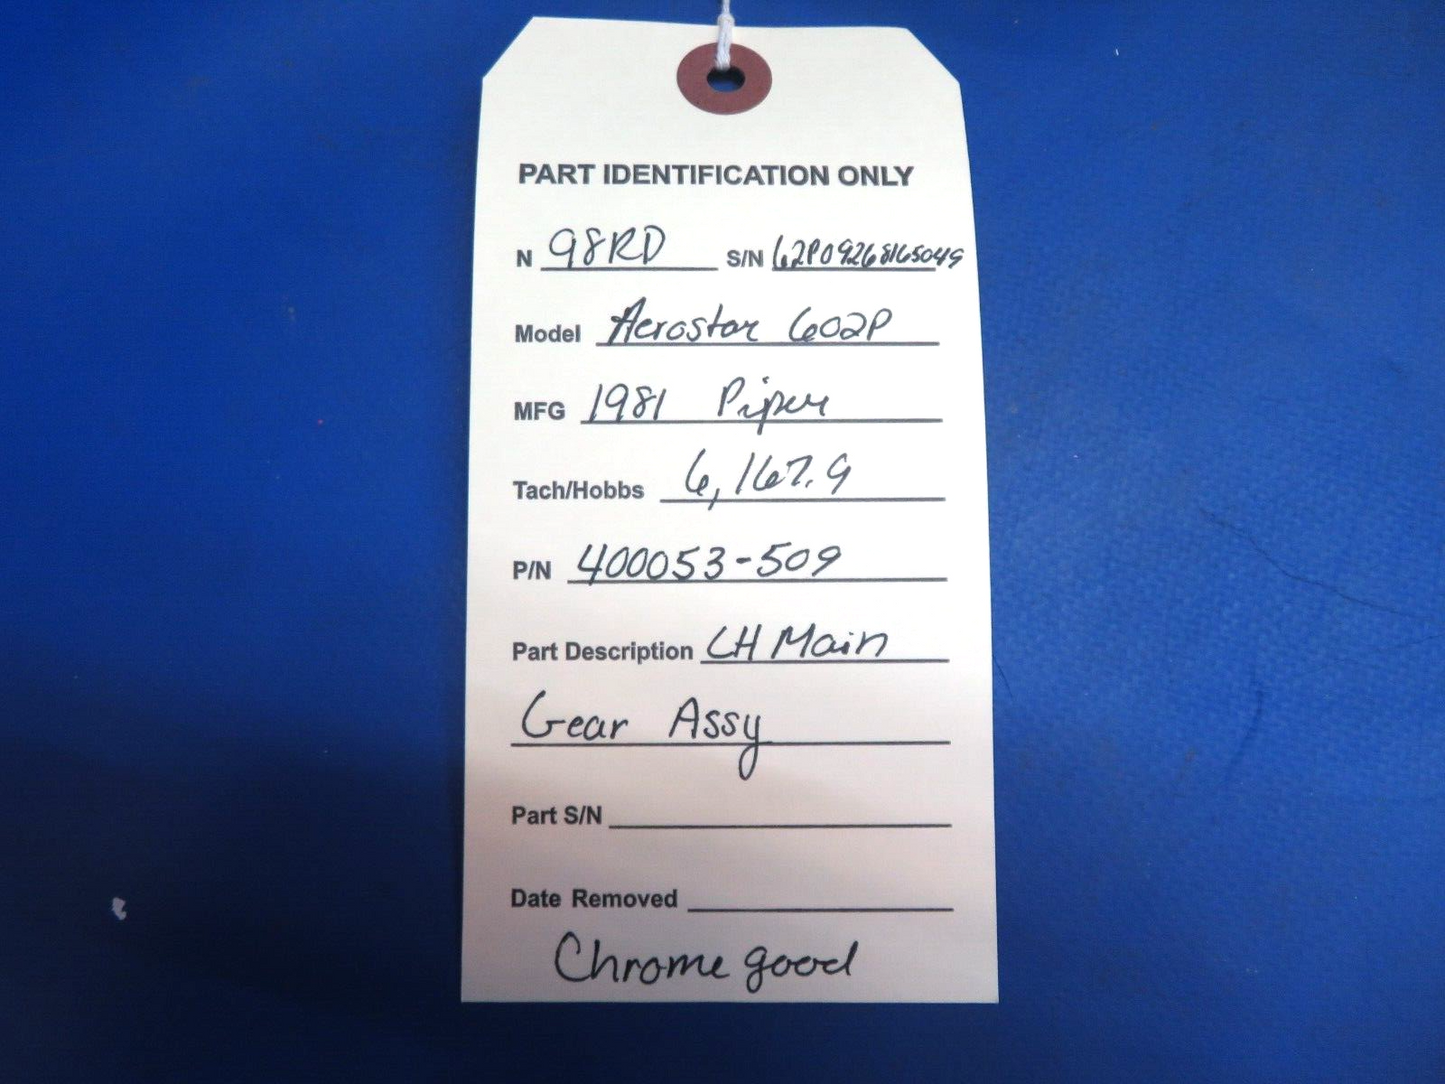 PART IDENTIFICATION ONLY
N 98RD S/N 62P09268165049
Model Aerostar 602P
MFG 1981 Piper
Tach/Hobbs 6,167.9
P/N 400053-509
Part Description LH Main
Gear Assy
Part S/N
Date Removed
Chrome good